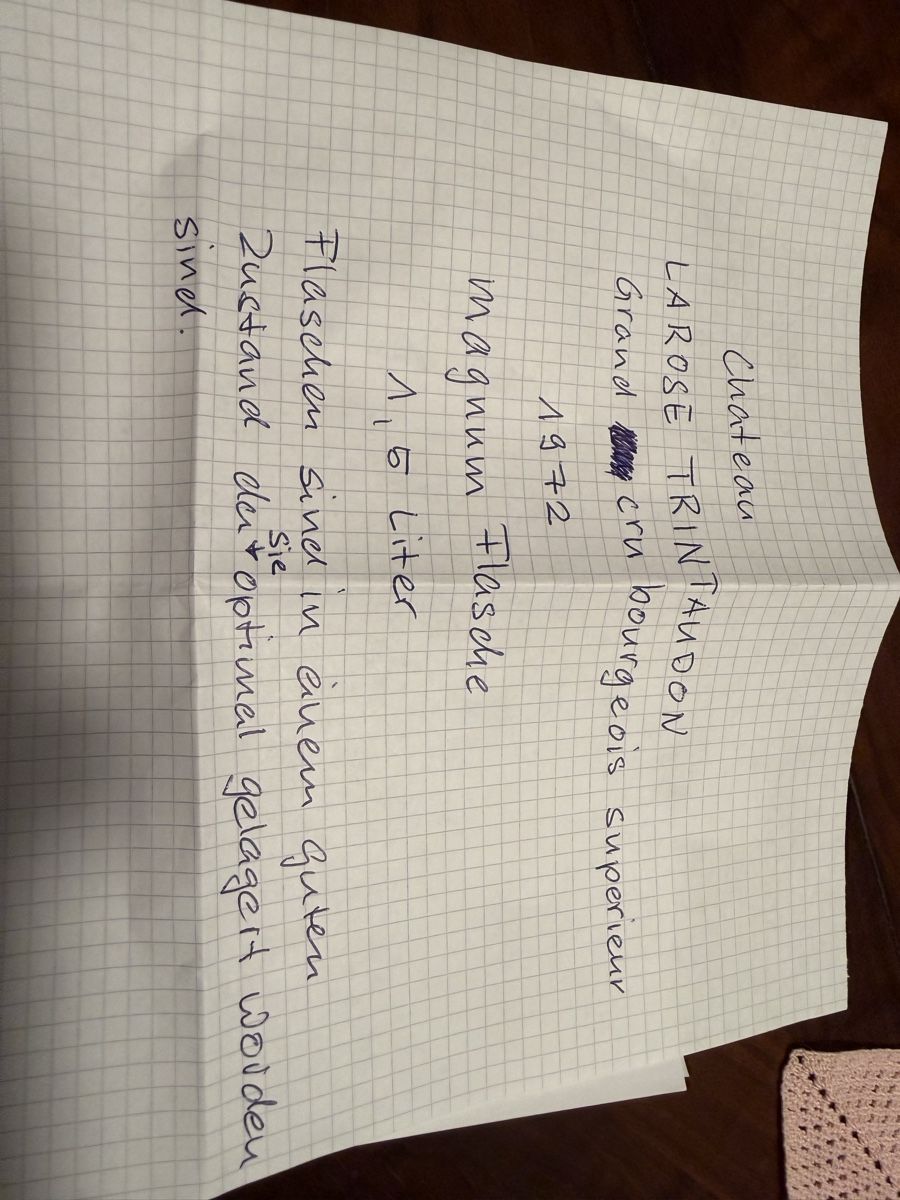 Chateau
LAROSE TRINTAUDON
Grand cru bourgeois superieur
1972
Magnum Flasche
1,5 Liter
Flaschen sind in einem guten
Zustand da sie optimal gelagert worden
sind.